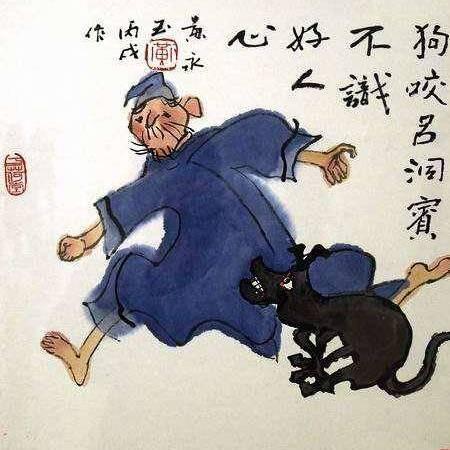 狗咬呂洞賓
不識
好人
心
黄永
玉
丙戌
作